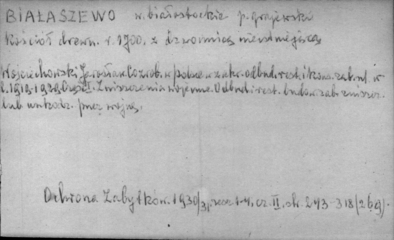 BIAŁASZEWO w. białostockie p. grajewski
Kościół drewn. r. 1700, z dzwonnicą nieistniejącą
Wojciechowski Jarosław, Co zrob. w Polsce w zakr. odbud. rest. i kons. zab. nf. w
l. 1918-1930 Cz. II. Zniszczenia wojenne. Odbud. i rest. budow. zab. zniszcz.
lub uszkodz. przez wojnę.
Ochrona Zabytków. 1930/31, zesz. 1-4, cz. II, str. 243-318/264/.